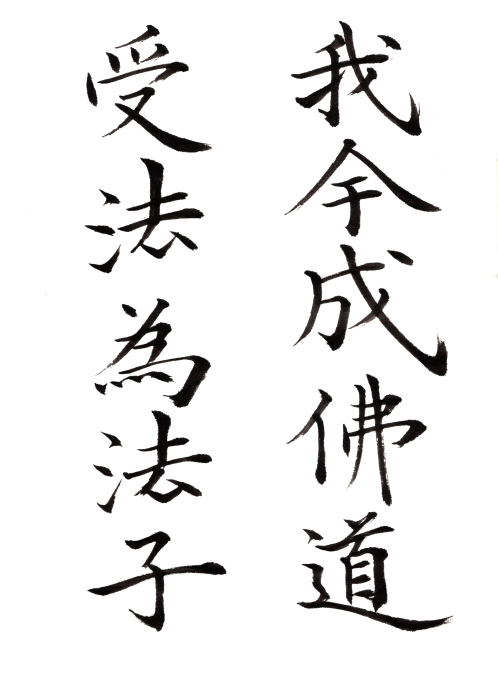 我今成佛道
受法為法子